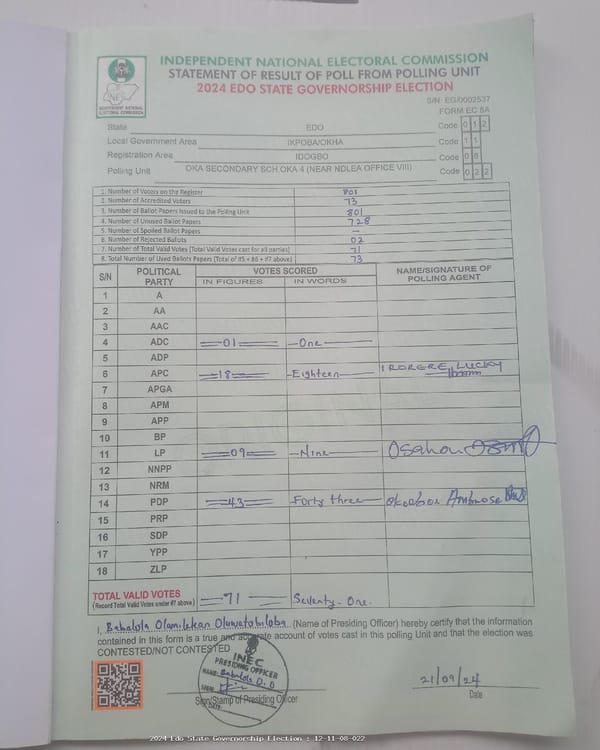 INDEPENDENT NATIONAL ELECTORAL COMMISSION
STATEMENT OF RESULT OF POLL FROM POLLING UNIT
2024 EDO STATE GOVERNORSHIP ELECTION
S/N: EG/0002537
FORM EC 8A
INEC
INDEPENDENT NATIONAL ELECTORAL COMMISSION
State EDO Code 0 1 2
Local Government Area IKPOBA/OKHA Code 1 1
Registration Area IDOGBO Code 0 8
Polling Unit OKA SECONDARY SCH.OKA 4 (NEAR NDLEA OFFICE VIII) Code 0 2 2
1. Number of Voters on the Register 801
2. Number of Accredited Voters 73
3. Number of Ballot Papers Issued to the Polling Unit 801
4. Number of Unused Ballot Papers 728
5. Number of Spoiled Ballot Papers -
6. Number of Rejected Ballots 02
7. Number of Total Valid Votes (Total Valid Votes cast for all parties) 71
8. Total Number of Used Ballots Papers (Total of #5 + #6 + #7 above) 73
S/N POLITICAL PARTY VOTES SCORED NAME/SIGNATURE OF POLLING AGENT
IN FIGURES IN WORDS
1 A
2 AA
3 AAC
4 ADC 01 One
5 ADP
6 APC 18 Eighteen IRORERE LUCKY
7 APGA
8 APM
9 APP
10 BP
11 LP 09 Nine Osahon
12 NNPP
13 NRM
14 PDP 43 Forty three Ambrose
15 PRP
16 SDP
17 YPP
18 ZLP
TOTAL VALID VOTES 71 Seventy-One.
(Record Total Valid Votes under #7 above)
I, Babalola Olamilekan Oluwatobiloba (Name of Presiding Officer) hereby certify that the information
contained in this form is a true and accurate account of votes cast in this polling Unit and that the election was
CONTESTED/NOT CONTESTED
INEC
PRESIDING OFFICER
NAME: Babalola O.O
SIGN:
DATE:
Sign/Stamp of Presiding Officer
21/09/24
Date
2024 Edo State Governorship Election : 12-11-08-022